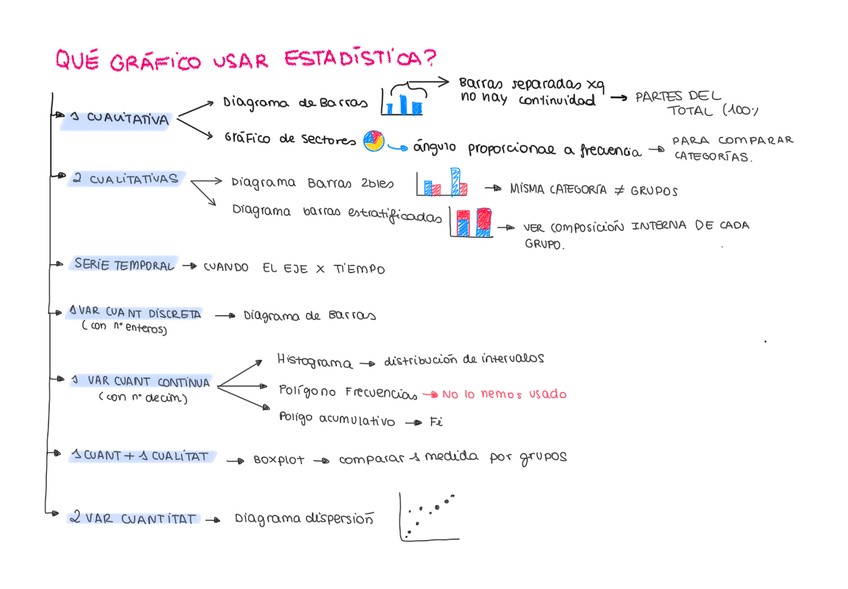 QUÉ GRÁFICO USAR ESTADÍSTICA?
1 CUALITATIVA
Diagrama de Barras
Barras separadas xq
no hay continuidad
PARTES DEL
TOTAL (100%
Gráfico de sectores
ángulo proporcional a frecuencia
PARA COMPARAR
CATEGORÍAS.
2 CUALITATIVAS
Diagrama Barras 2bles
MISMA CATEGORÍA ≠ GRUPOS
Diagrama barras estratificadas
VER COMPOSICIÓN INTERNA DE CADA
GRUPO.
SERIE TEMPORAL → CUANDO EL EJE X TIEMPO
1 VAR CUANT DISCRETA → Diagrama de Barras
(con nº enteros)
1 VAR CUANT CONTINUA
(con nº decim)
Histograma → distribución de intervalos
Polígono Frecuencias → No lo hemos usado
Polígo acumulativo → Fi
1 CUANT + 1 CUALITAT → BOXPLOT → comparar 1 medida por grupos
2 VAR CUANTITAT → Diagrama dispersión